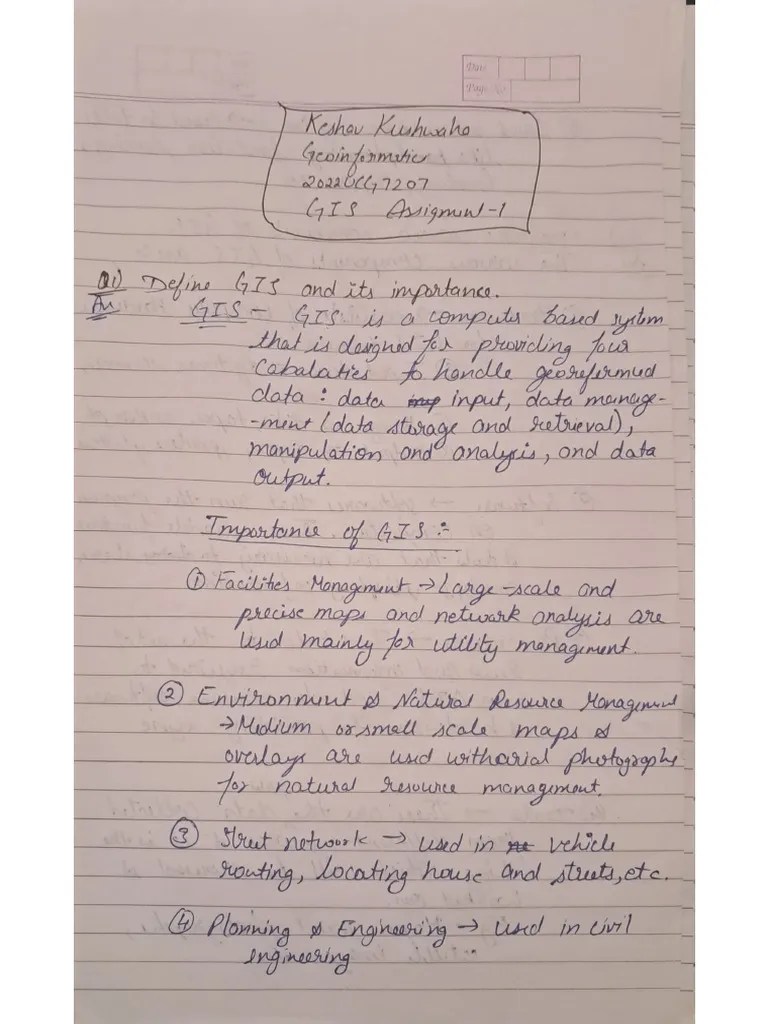 Date
Page No
Keshav Kushwaha
Geoinformatics
2022UCG7207
GIS Assigment-1
Q1) Define GIS and its importance.
An GIS - GIS is a computer based system
that is designed for providing four
cabalaties to handle georefermed
data : data input, data manage-
-ment (data storage and retrieval),
manipulation and analysis, and data
output.
Importance of GIS :-
① Facilities Management → Large-scale and
precise maps and network analysis are
used mainly for utility management.
② Environment & Natural Resource Management
→ Medium or small scale maps &
overlays are used with arial photographs
for natural resource management.
③ Street network → used in vehicle
routing, locating house and streets, etc.
④ Planning & Engineering → used in civil
engineering